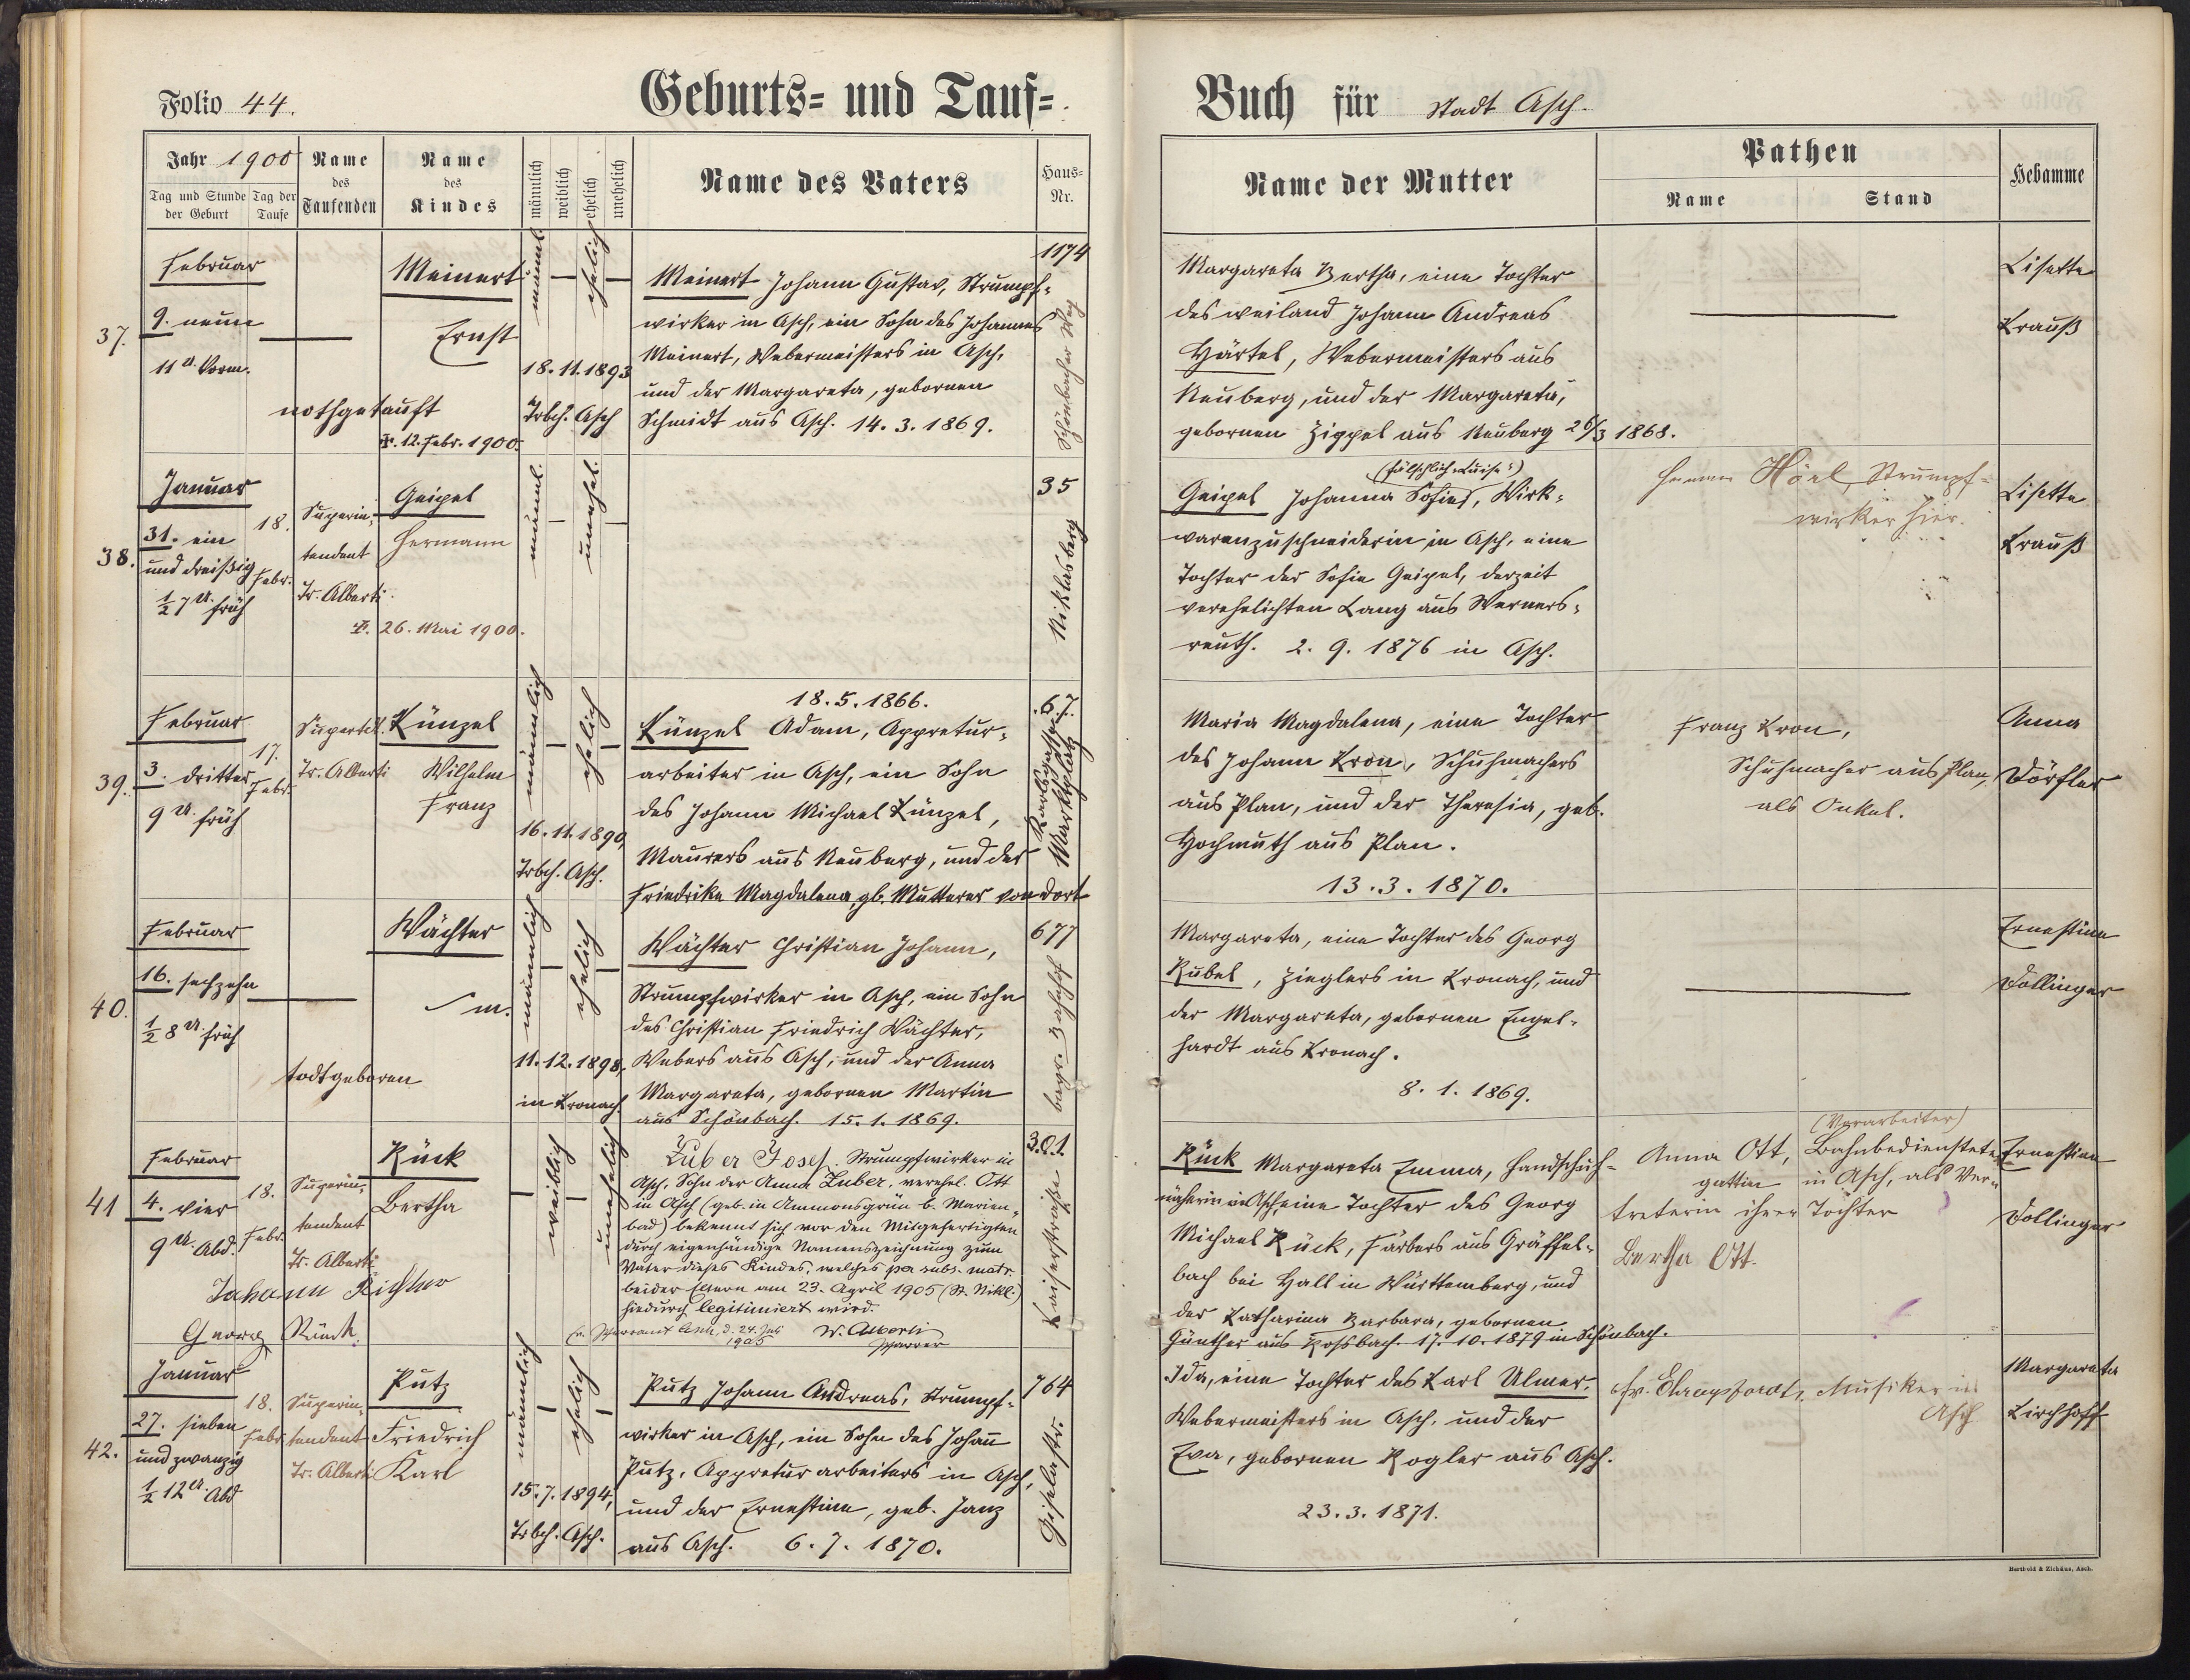 Folio 44.
Geburts= und Tauf=
Buch für Stadt Asch.
Jahr 1900
Tag und Stunde der Geburt
Tag der Taufe
Name des Taufenden
Name des Kindes
männlich
weiblich
ehelich
unehelich
Name des Vaters
Haus=Nr.
Name der Mutter
Pathen
Name
Stand
Hebamme
37.
Februar
9. neun
11 U. Vorm.
nothgetauft
Meinert
Ernst
†. 12. Febr. 1900.
männl.
ehelich
18. 11. 1893
Trbch. Asch
Meinert Johann Gustav, Strumpf=
wirker in Asch, ein Sohn des Johannes
Meinert, Webermeisters in Asch,
und der Margareta, gebornen
Schmidt aus Asch. 14. 3. 1869.
1174
Schönbacher Weg
Margareta Bertha, eine Tochter
des weiland Johann Andreas
Härtel, Webermeisters aus
Neuberg, und der Margareta,
gebornen Zippel aus Neuberg 26/3 1868.
Lisette
Krauß
38.
Januar
31. ein
und dreißig
½ 7 U. früh
18.
Febr.
Superin=
tendent
Tr. Alberti
Geipel
Hermann
†. 26. Mai 1900.
männl.
unehel.
35
Niklasberg
(fälschlich „Luise“)
Geipel Johanna Sofie, Wirk=
warenzuschneiderin in Asch, eine
Tochter der Sofie Geipel, derzeit
verehelichten Lang aus Werners=
reuth. 2. 9. 1876 in Asch.
Hörl, Strumpf=
wirker hier.
Lisette
Krauß
39.
Februar
3. dritter
9 U. früh
17.
Febr.
Superdt.
Tr. Alberti
Künzel
Wilhelm
Franz
männlich
ehelich
16. 11. 1890,
Trbch. Asch.
18. 5. 1866.
Künzel Adam, Appretur=
arbeiter in Asch, ein Sohn
des Johann Michael Künzel,
Maurers aus Neuberg, und der
Friedrike Magdalena, gb. Mutterer von dort
67.
Karlsgasse
Marktplatz
Maria Magdalena, eine Tochter
des Johann Kron, Schuhmachers
aus Plan, und der Theresia, geb.
Hochmuth aus Plan.
13. 3. 1870.
Franz Kron,
Schuhmacher aus Plan,
als Onkel.
Anna
Dörfler
40.
Februar
16. sechzehn
½ 8 U. früh
todtgeboren
Wächter
m.
männlich
ehelich
11. 12. 1898,
in Kronach.
Wächter Christian Johann,
Strumpfwirker in Asch, ein Sohn
des Christian Friedrich Wächter,
Webers aus Asch, und der Anna
Margareta, gebornen Martin
aus Schönbach. 15. 1. 1869.
677
bayr. Bahnhof
Margareta, eine Tochter des Georg
Kubel, Zieglers in Kronach, und
der Margareta, gebornen Engel=
hardt aus Kronach.
8. 1. 1869.
Ernestine
Dollinger
41
Februar
4. vier
9 U. Abd.
18.
Febr.
Superin=
tendent
Tr. Alberti
Rück
Bertha
Johann Richter
Georg Künzel
weiblich
unehelich
Zuber Josef, Strumpfwirker in
Asch, Sohn der Anna Zuber, verehel. Ott
in Asch (geb. in Ammonsgrün b. Marien=
bad) bekennt sich vor den Mitgefertigten
durch eigenhändige Namenszeichnung zum
Vater dieses Kindes, welches per subs. matr.
beider Eltern am 23. April 1905 (St. Nikl.)
hiedurch legitimiert wird.
Ev. Pfarramt Asch, d. 24. Juli 1905
W. Alberti
Pfarrer
301.
Kaiserstraße
Rück Margareta Emma, Handschuh=
näherin in Asch, eine Tochter des Georg
Michael Rück, Färbers aus Gräffel=
bach bei Hall in Württemberg, und
der Katharina Barbara, gebornen
Günther aus Rossbach. 17. 10. 1879 in Schönbach.
(Vorarbeiter)
Anna Ott, Bahnbediensteten=
gattin in Asch, als Ver=
treterin ihrer Tochter
Bertha Ott.
Ernestine
Dollinger
42.
Januar
27. sieben
und zwanzig
½ 12 U. Abd
18.
Febr.
Superin=
tendent
Tr. Alberti
Putz
Friedrich
Karl
männlich
ehelich
15. 7. 1894,
Trbch. Asch.
Putz Johann Andreas, Strumpf=
wirker in Asch, ein Sohn des Johann
Putz, Appreturarbeiters in Asch,
und der Ernestine, geb. Janz
aus Asch. 6. 7. 1870.
764
Giselastr.
Ida, eine Tochter des Karl Ulmer,
Webermeisters in Asch, und der
Eva, gebornen Kogler aus Asch.
23. 3. 1871.
Musiker in
Asch
Margareta
Kirchhoff
Berthold & Zickäus, Asch.